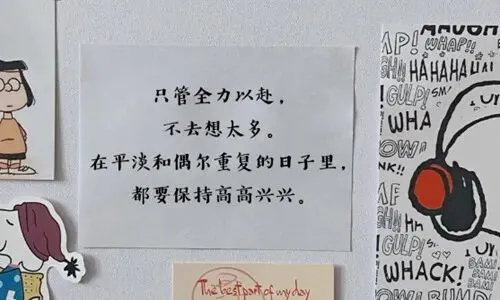 只管全力以赴，
不去想太多。
在平淡和偶尔重复的日子里，
都要保持高高兴兴。
The best part of my day
WHAP!!
HAHAHAHA
GULP!
WHA
GULP!
WHACK!
BAM!